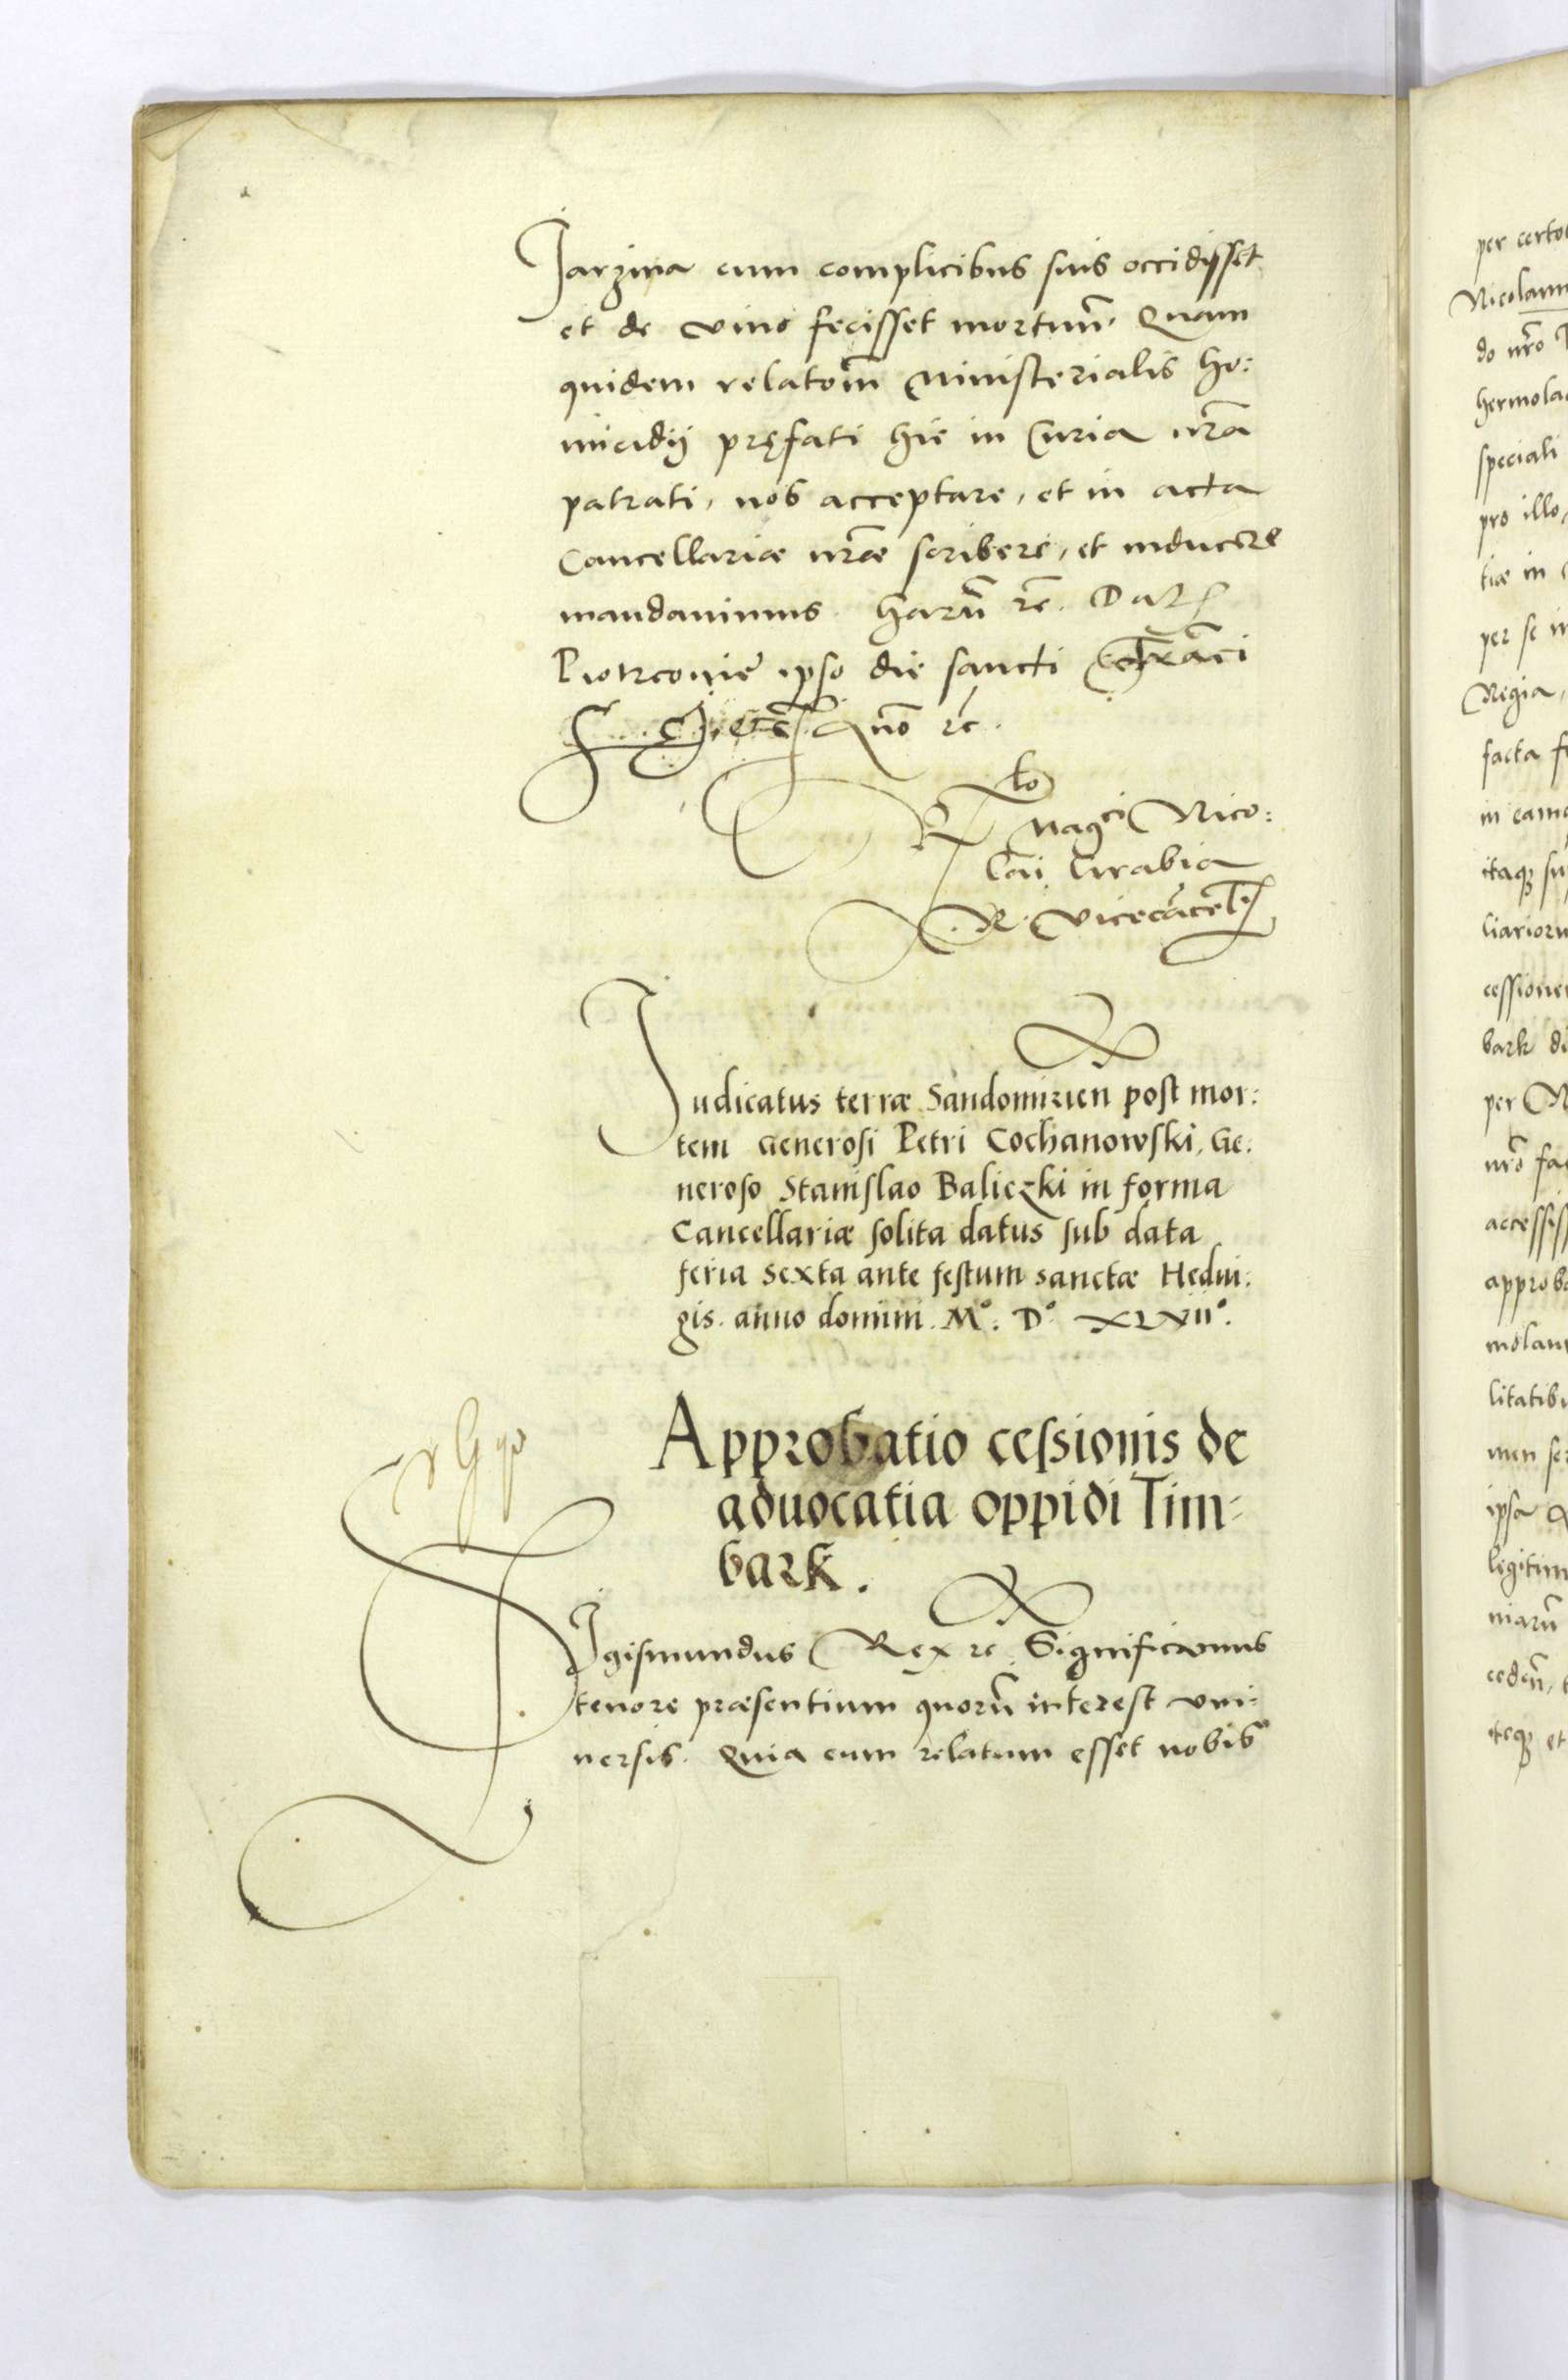 Jarzina cum complicibus suis occidisset
et de vivo fecisset mortuū. Quam
quidem relatoīm Ministerialis ho:
micidij pręfati hic in Curia nrā
patrati, nos acceptare, et in acta
Cancellariæ nrāe scribere, et inducere
mandavimus. Harū rc. Dat
Piotrconię ipso die sancti
Anō rc.
Rlo Magci Nico:
lai Grabia
R. vicecācel
Judicatus terræ Sandomirien post mor:
tem Generosi Petri Cochanowski, Ge:
neroso Stanislao Baliczki in forma
Cancellariæ solita datus sub data
feria sexta ante festum sanctæ Hedui:
gis. anno domini. Mº. Dº. XLVIIº.
Approbatio cessionis de
aduocatia oppidi Tim-
bark.
SIgismundus Rex rc. Significamus
tenore præsentium quorū interest vni-
uersis. Quia cum relatum esset nobis
per certo
Nicolaum
do nrō
hermola
speciali
pro illo,
tiæ in
per se in
Regia,
facta f
in eam
itaq su
liarioru
cessione
bark d
per N
nrō fa
accessis
approba
molau
litatib
men se
ipsa
legitim
niarū
cedeñ,
teq et